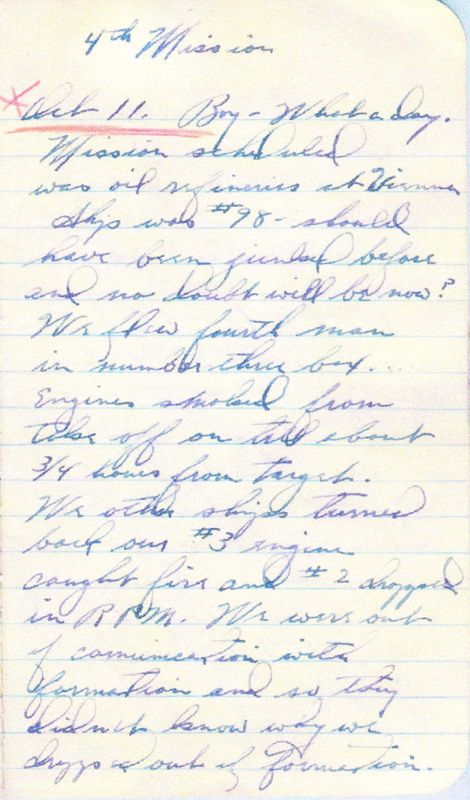 4th Mission
Oct 11. Boy - What a day.
Mission scheduled
was oil refineries at Vienna
Ship was #98 - should
have been junked before
and no doubt will be now?
We flew fourth man
in number three box...
Engines smoked from
take off on till about
3/4 hours from target.
We other ships turned
back our #3 engine
caught fire and #2 dropped
in RPM. We were out
of comunication with
formation and so they
didn't know why we
dropped out of formation.